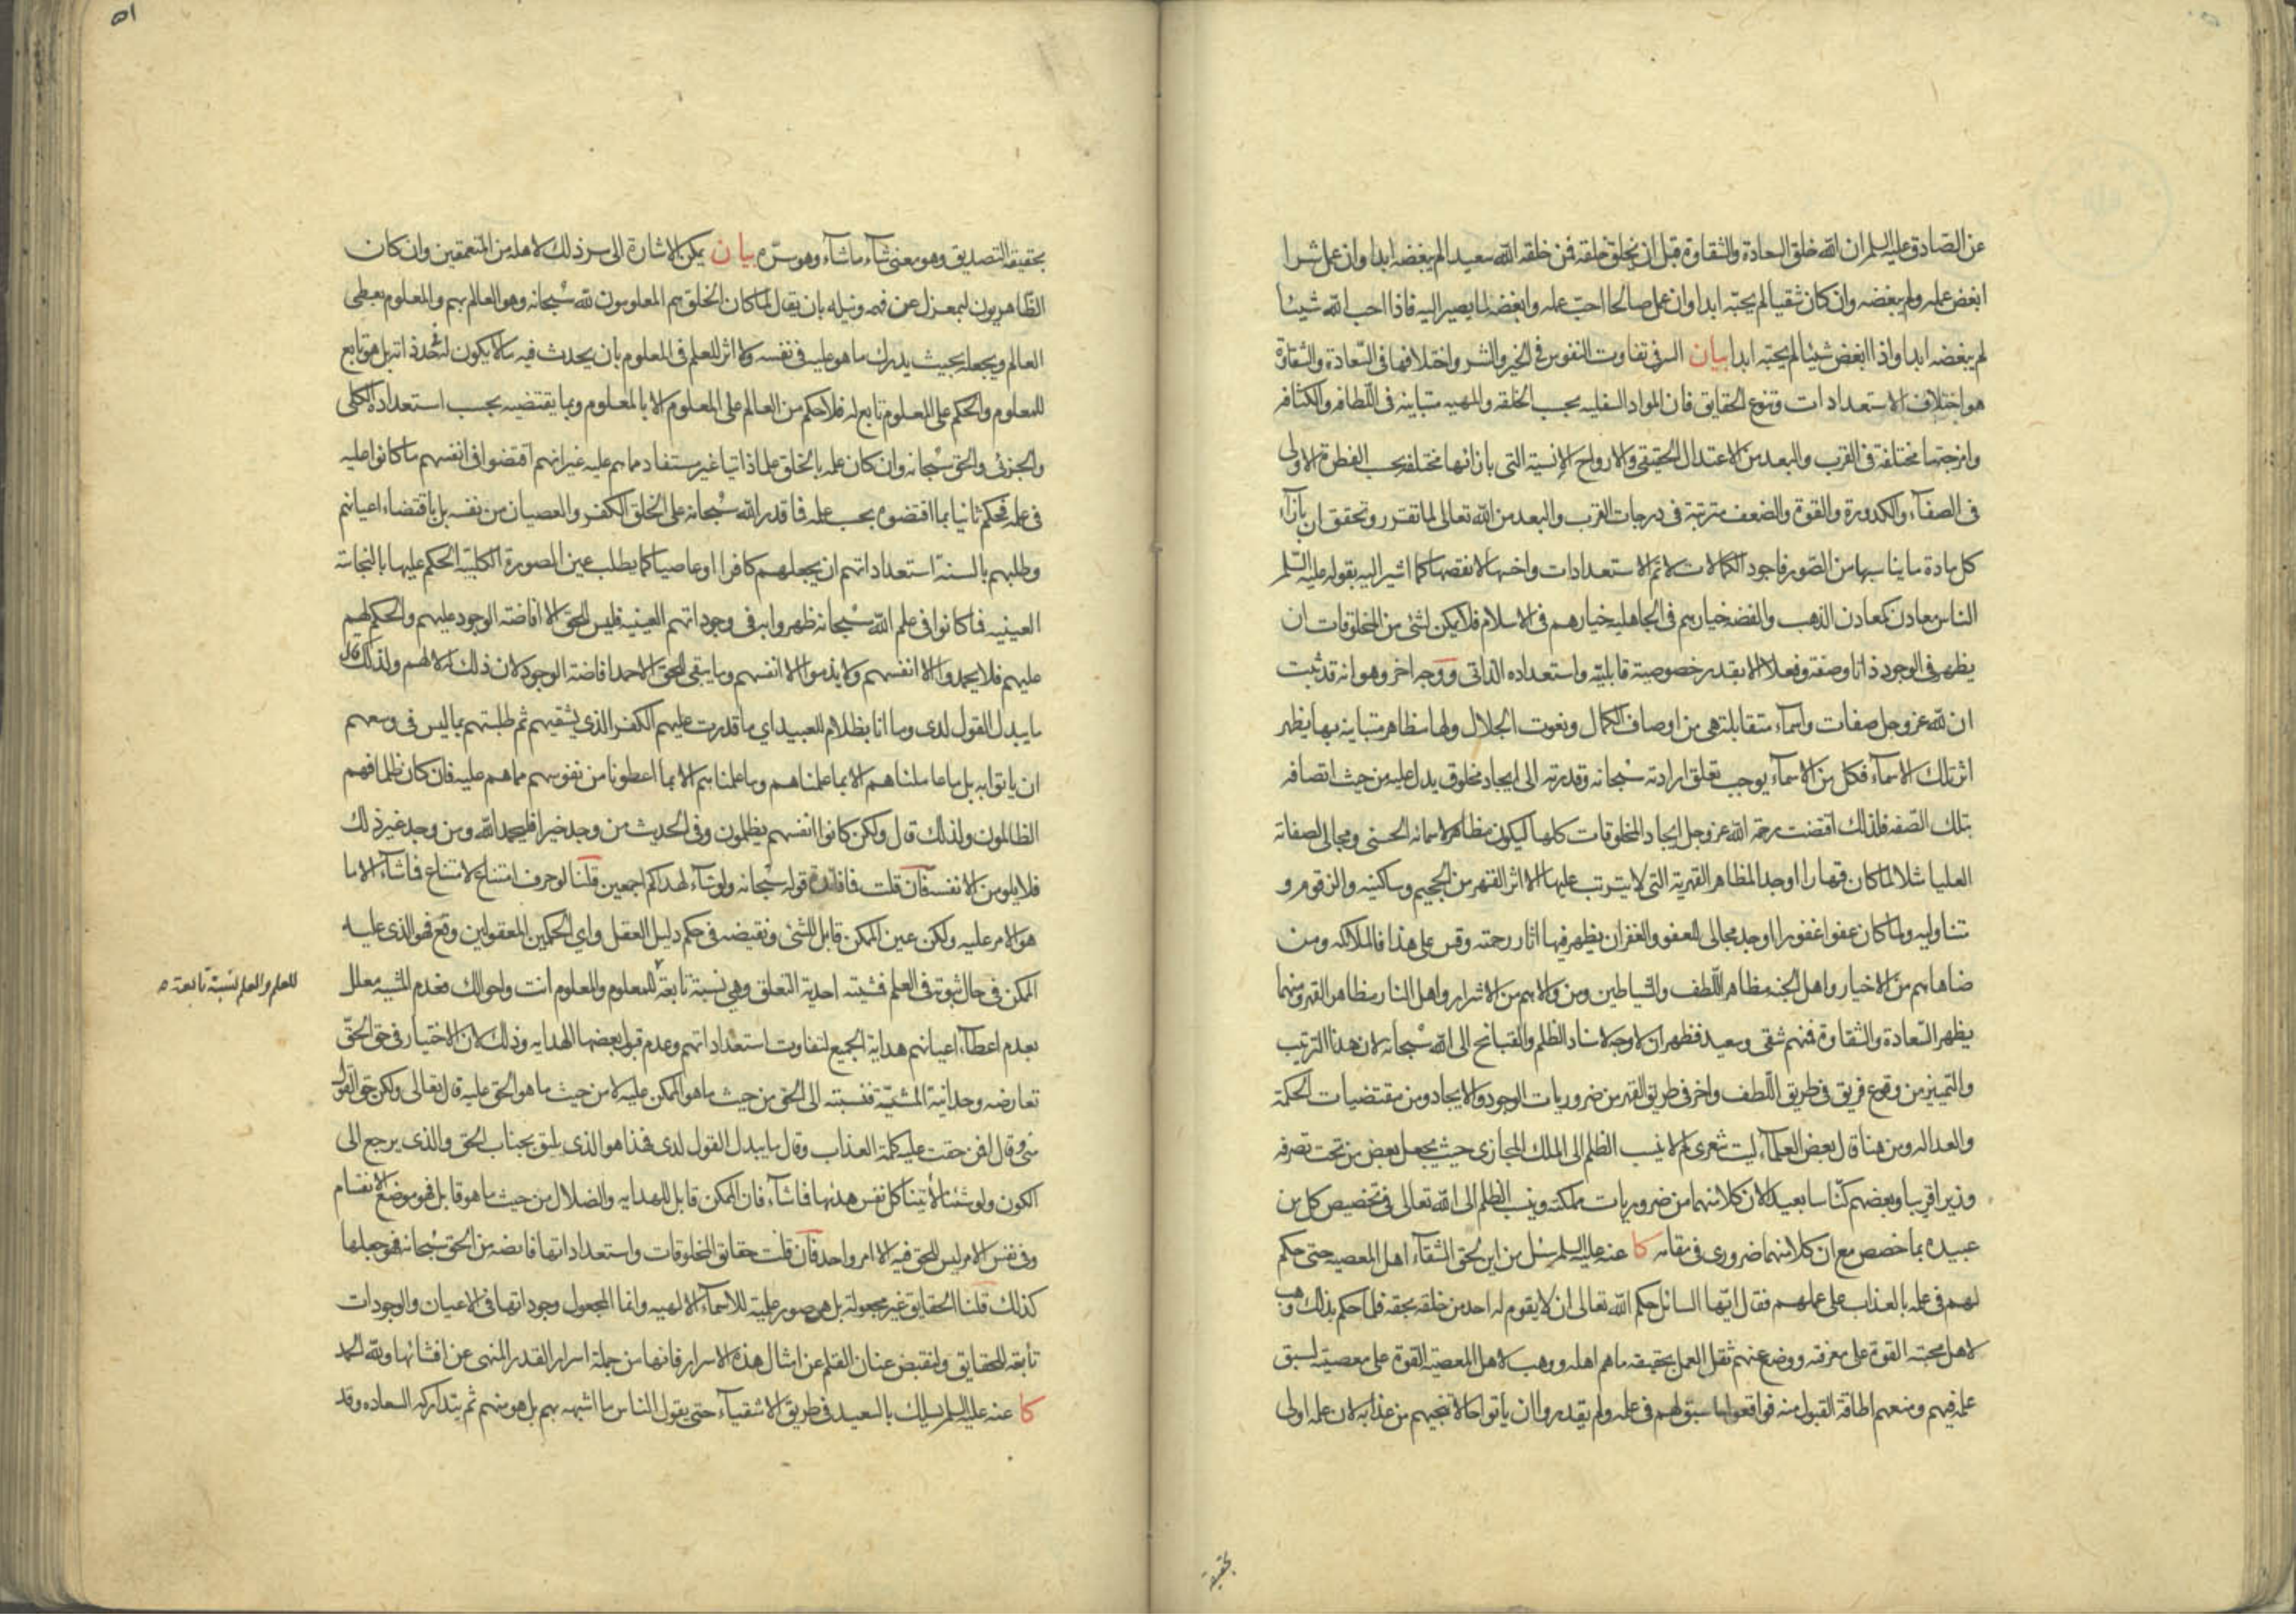 عن الصادق عليه السلم ان الله خلق السعادة والشقاوة قبل ان يخلق خلقه فمن خلقه الله سعيدا لم يبغضه ابدا وان عمل شرا
ابغض عمله ولم يبغضه وان كان شقيا لم يحبه ابدا وان عمل صالحا احب عمله وابغضه لما يصير اليه فاذا احب الله شيئا
لم يبغضه ابدا واذا ابغض شيئا لم يحبه ابدا بيان السر في تفاوت النفوس في الخير والشر واختلافها في السعادة والشقاوة
هو اختلاف الاستعدادات وتنوع الحقايق فان المواد السفليه بحسب الخلقه والمهيه متباينه في اللطافه والكثافه
وامزجتها مختلفة في القرب والبعد من الاعتدال الحقيقي والارواح الانسية التي بازائها مختلفه بحسب الفطرة الاولى
في الصفاء والكدورة والقوة والضعف مترتبة في درجات القرب والبعد من الله تعالى لما تقرر وتحقق ان بازاء
كل مادة ما يناسبها من الصور فاجود الكمالات لاتم الاستعدادات واخسها لانقصها كما اشير اليه بقوله عليه السلم
الناس معادن كمعادن الذهب والفضه خيارهم في الجاهليه خيارهم في الاسلام فلا يمكن لشئ من المخلوقات ان
يظهر في الوجود ذاتا وصفة وفعلا الا بقدر خصوصية قابليته واستعداده الذاتي ووجه اخر وهو انه قد ثبت
ان لله عز وجل صفات واسماء متقابلة هي من اوصاف الكمال ونعوت الجلال ولها مظاهر متباينه بها يظهر
اثر تلك الاسماء فكل من الاسماء يوجب تعلق ارادته سبحانه وقدرته الى ايجاد مخلوق يدل عليه من حيث اتصافه
بتلك الصفه فلذلك اقتضت رحمة الله عز وجل ايجاد المخلوقات كلها ليكون مظاهر لاسمائه الحسنى ومجالي لصفاته
العليا مثلا لما كان قهارا اوجد المظاهر القهرية التي لا يترتب عليها الا اثر القهر من الجحيم وساكنيه والزقوم و
متناوليه ولما كان عفوا غفورا اوجد مجالي للعفو والغفران يظهر فيها اثار رحمته وقس على هذا فالملائكه ومن
ضاهاهم من الاخيار واهل الجنه مظاهر اللطف والشياطين ومن والاهم من الاشرار واهل النار مظاهر القهر ومنهما
يظهر السعادة والشقاوة فمنهم شقي وسعيد فظهر ان لا وجه لاسناد الظلم والقبائح الى الله سبحانه لان هذا الترتيب
والتمييز من وقوع فريق في طريق اللطف واخر في طريق القهر من ضروريات الوجود والايجاد ومن مقتضيات الحكمة
والعداله ومن هنا قال بعض العلماء ليت شعري لم لا ينسب الظلم الى الملك المجازي حيث يجعل بعض من تحت تصرفه
وزيرا قريبا وبعضهم كناسا بعيدا لان كلا منهما من ضروريات مملكته وينسب الظلم الى الله تعالى في تخصيص كل من
عبيده بما خصص مع ان كلا منهما ضروري في مقامه كا عنه عليه السلم سئل من اين لحق الشقاء اهل المعصيه حتى حكم
لهم في علمه بالعذاب على عملهم فقال ايها السائل حكم الله تعالى ان لا يقوم له احد من خلقه بحقه فلما حكم بذلك وهب
لاهل محبته القوة على معرفته ووضع عنهم ثقل العمل بحقيقه ما هم اهله ووهب لاهل المعصيه القوة على معصيته لسبق
علمه فيهم ومنعهم اطاقة القبول منه فواقعوا ما سبق لهم في علمه ولم يقدروا ان يأتوا حالا تنجيهم من عذابه لان علمه اولى
بحقيقة
٥١
بحقيقه التصديق وهو معنى شاء ما شاء وهو سره بيان يمكن الاشارة الى سر ذلك لاهله من المتعمقين وان كان
الظاهريون لبمعزل عن فهمه ونيله بان يقال لما كان الخلق هم المعلومون لله سبحانه وهو العالم بهم والمعلوم يعطي
العالم ويجعله بحيث يدرك ما هو عليه في نفسه ولا اثر للعلم في المعلوم بان يحدث فيه ما لا يكون له في حد ذاته بل هو تابع
للمعلوم والحكم على المعلوم تابع له فلا حكم من العالم على المعلوم الا بالمعلوم وبما يقتضيه بحسب استعداده الكلي
والجزئي والحق سبحانه وان كان علمه بالخلق علما ذاتيا غير مستفاد مما هم عليه غير انهم اقتضوا في انفسهم ما كانوا عليه
في علمه فحكم ثانيا بما اقتضوه بحسب علمه فما قدر الله سبحانه على الخلق الكفر والعصيان من نفسه بل باقتضاء اعيانهم
وطلبهم بالسنة استعداداتهم ان يجعلهم كافرا او عاصيا كما يطلب عين الصورة الكلبية الحكم عليها بالنجاسة
العينيه فما كانوا في علم الله سبحانه ظهروا به في وجوداتهم العينيه فليس للحق الا افاضة الوجود عليهم والحكم لهم
عليهم فلا يحمدوا الا انفسهم ولا يذموا الا انفسهم وما يبقى للحق الا حمد افاضة الوجود لان ذلك له لا لهم ولذلك قال
ما يبدل القول لدى وما انا بظلام للعبيد اي ما قدرت عليهم الكفر الذي يشقيهم ثم طلبتهم بما ليس في وسعهم
ان ياتوا به بل ما عاملناهم الا بما علمناهم وما علمناهم الا بما اعطونا من نفوسهم مما هم عليه فان كان ظلما فهم
الظالمون ولذلك قال ولكن كانوا انفسهم يظلمون وفي الحديث من وجد خيرا فليحمد الله ومن وجد غير ذلك
فلا يلومن الا نفسه فان قلت فما فائدة قوله سبحانه ولو شاء لهداكم اجمعين قلنا لو حرف امتناع لامتناع فما شاء الا ما
هو الامر عليه ولكن عين الممكن قابل للشئ ونقيضه في حكم دليل العقل واي الحكمين المعقولين وقع فهو الذي عليه
الممكن في حال ثبوته في العلم فمشيته احدية التعلق وهي نسبة تابعة للمعلوم والمعلوم انت واحوالك فعدم المشيه معلل
للعلم والعلم نسبة تابعة
بعدم اعطاء اعيانهم هداية الجميع لتفاوت استعداداتهم وعدم قبول بعضها الهدايه وذلك لان الاختيار في حق الحق
تعارضه وحدانية المشية فنسبته الى الحق من حيث ما هو الممكن عليه لا من حيث ما هو الحق عليه قال تعالى ولكن حق القول
مني وقال افمن حقت عليه كلمة العذاب وقال ما يبدل القول لدى فهذا هو الذي يليق بجناب الحق والذي يرجع الى
الكون ولو شئنا لأتينا كل نفس هداها فما شاء فان الممكن قابل للهدايه والضلال من حيث ما هو قابل فهو موضع الانقسام
وفي نفس الامر ليس للحق فيه الا امر واحد فان قلت حقائق المخلوقات واستعداداتها فايضه من الحق سبحانه فهو جعلها
كذلك قلنا الحقايق غير مجعولة بل هي صور علمية للاسماء الالهيه وانما المجعول وجوداتها في الاعيان والوجودات
تابعه للحقايق ولنقبض عنان القلم عن امثال هذه الاسرار فانها من جملة اسرار القدر المنهى عن افشائها ولله الحمد
كا عنه عليه السلم يسلك بالسعيد في طريق الاشقياء حتى يقول الناس ما اشبهه بهم بل هو منهم ثم يتداركه السعاده وقد